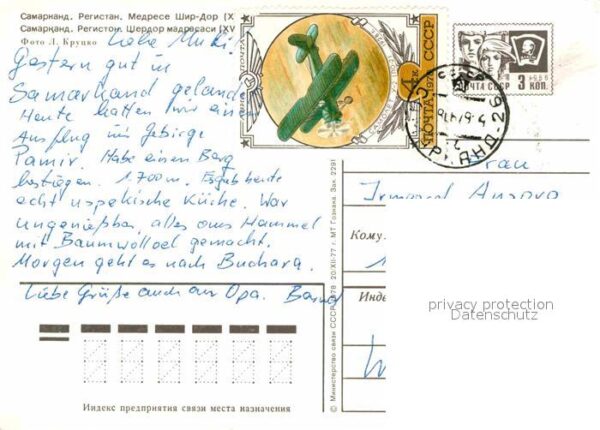 Самарканд. Регистан. Медресе Шир-Дор (X
Самарқанд. Регистон. Шердор мадрасаси (XV
Фото Л. Круцко
Liebe Muki!
Gestern gut in
Samarkand gelandet
Heute hatten wir ein
Ausflug ins Gebirge
Pamir. Habe einen Berg
bestiegen. 1700m. Es gab heute
echt uspekische Küche. War
ungenießbar, alles aus Hammel
mit Baumwolloel gemacht.
Morgen geht es nach Buchara.
Liebe Grüße auch an Opa.
АВИАПОЧТА
ПОЧТА СССР 1978
4к
ПОЧТА СССР
3 коп.
1966
Frau
Irmgard
Кому
Инде
privacy protection
Datenschutz
© Министерство связи СССР, 1978 20/XII-77 г. МТ Гознака. Зак. 2291
Индекс предприятия связи места назначения